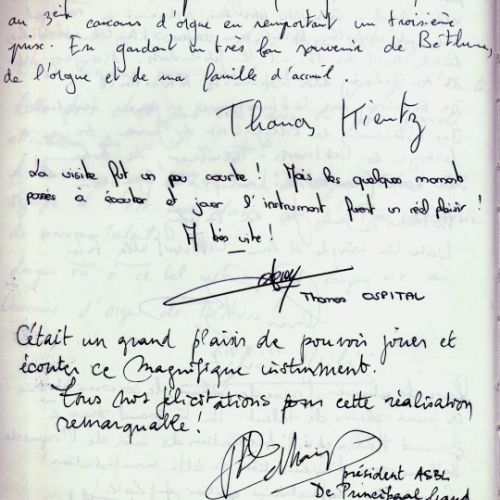 au 3ème concours d'orgue en remportant un troisième
prix. En gardant un très bon souvenir de Béthune,
de l'orgue et de ma famille d'accueil.
Thomas Kientz
La visite fut un peu courte ! Mais les quelques moments
passés à écouter et jouer l'instrument furent un réel plaisir !
A très vite !
Thomas OSPITAL
C'était un grand plaisir de pouvoir jouer et
écouter ce magnifique instrument.
Tous nos félicitations pour cette réalisation
remarquable !
président ASBL
De Principaal